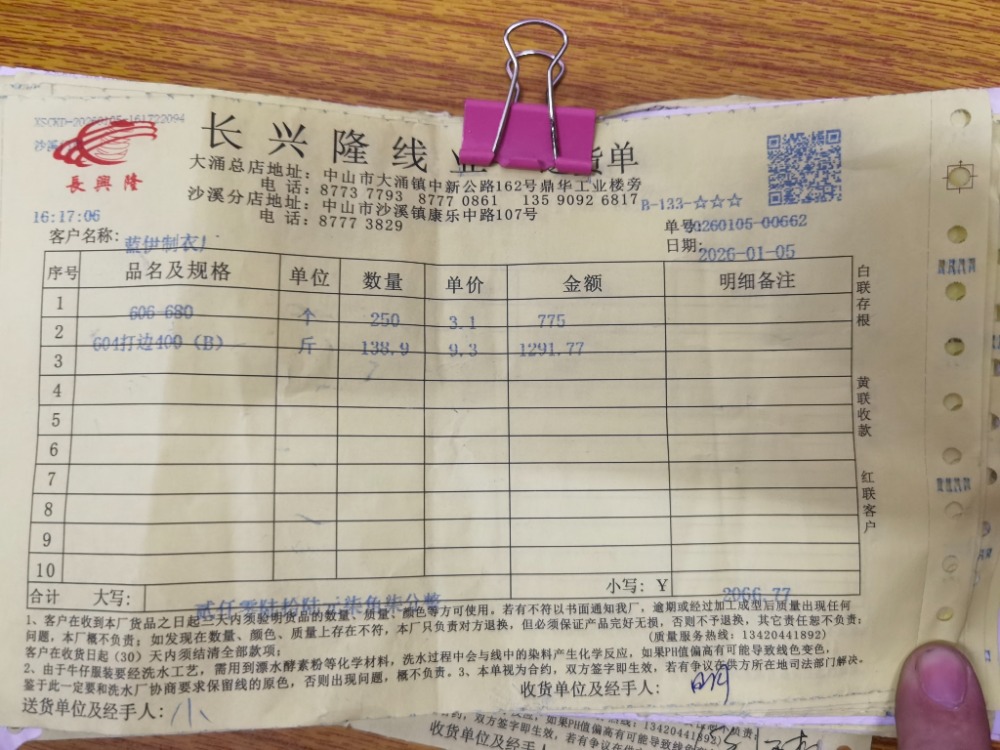 XSCKD-20260105-161722094
沙溪
長興隆
长兴隆线业 货单
大涌总店地址：中山市大涌镇中新公路162号鼎华工业楼旁
电话：8773 7793 8770 0861 135 9092 6817
沙溪分店地址：中山市沙溪镇康乐中路107号
电话：8777 3829
B-133-☆☆☆
16:17:06
单号:20260105-00662
客户名称：蓝伊制衣厂
日期：2026-01-05
序号 品名及规格 单位 数量 单价 金额 明细备注
1 606 680 个 250 3.1 775
2 604打边400（B） 斤 138.9 9.3 1291.77
3
4
5
6
7
8
9
10
合计 大写：贰仟零陆拾陆元柒角柒分整 小写：￥ 2066.77
白联存根
黄联收款
红联客户
1、客户在收到本厂货品之日起三天内须验明货品的数量、质量、颜色等方可使用，若有不符以书面通知我厂，逾期或经过加工成型后质量出现任何
问题，本厂概不负责；如发现在数量、颜色、质量上存在不符，本厂只负责对方退换，但必须保证产品完好无损，否则不予退换，其它责任恕不负责；
客户在收货日起（30）天内须结清全部款项；
(质量服务热线：13420441892)
2、由于牛仔服装要经洗水工艺，需用到漂水酵素粉等化学材料，洗水过程中会与线中的染料产生化学反应，如果PH值偏高有可能导致线色变色，
鉴于此一定要和洗水厂协商要求保留线的原色，否则出现问题，概不负责。3、本单视为合约，双方签字即生效，若有争议在供方所在地司法部门解决。
送货单位及经手人：小
收货单位及经手人：
如果PH值偏高有可能导致线
13420441892)
双方签字即生效，若有争议在供
收货单位及经手人：